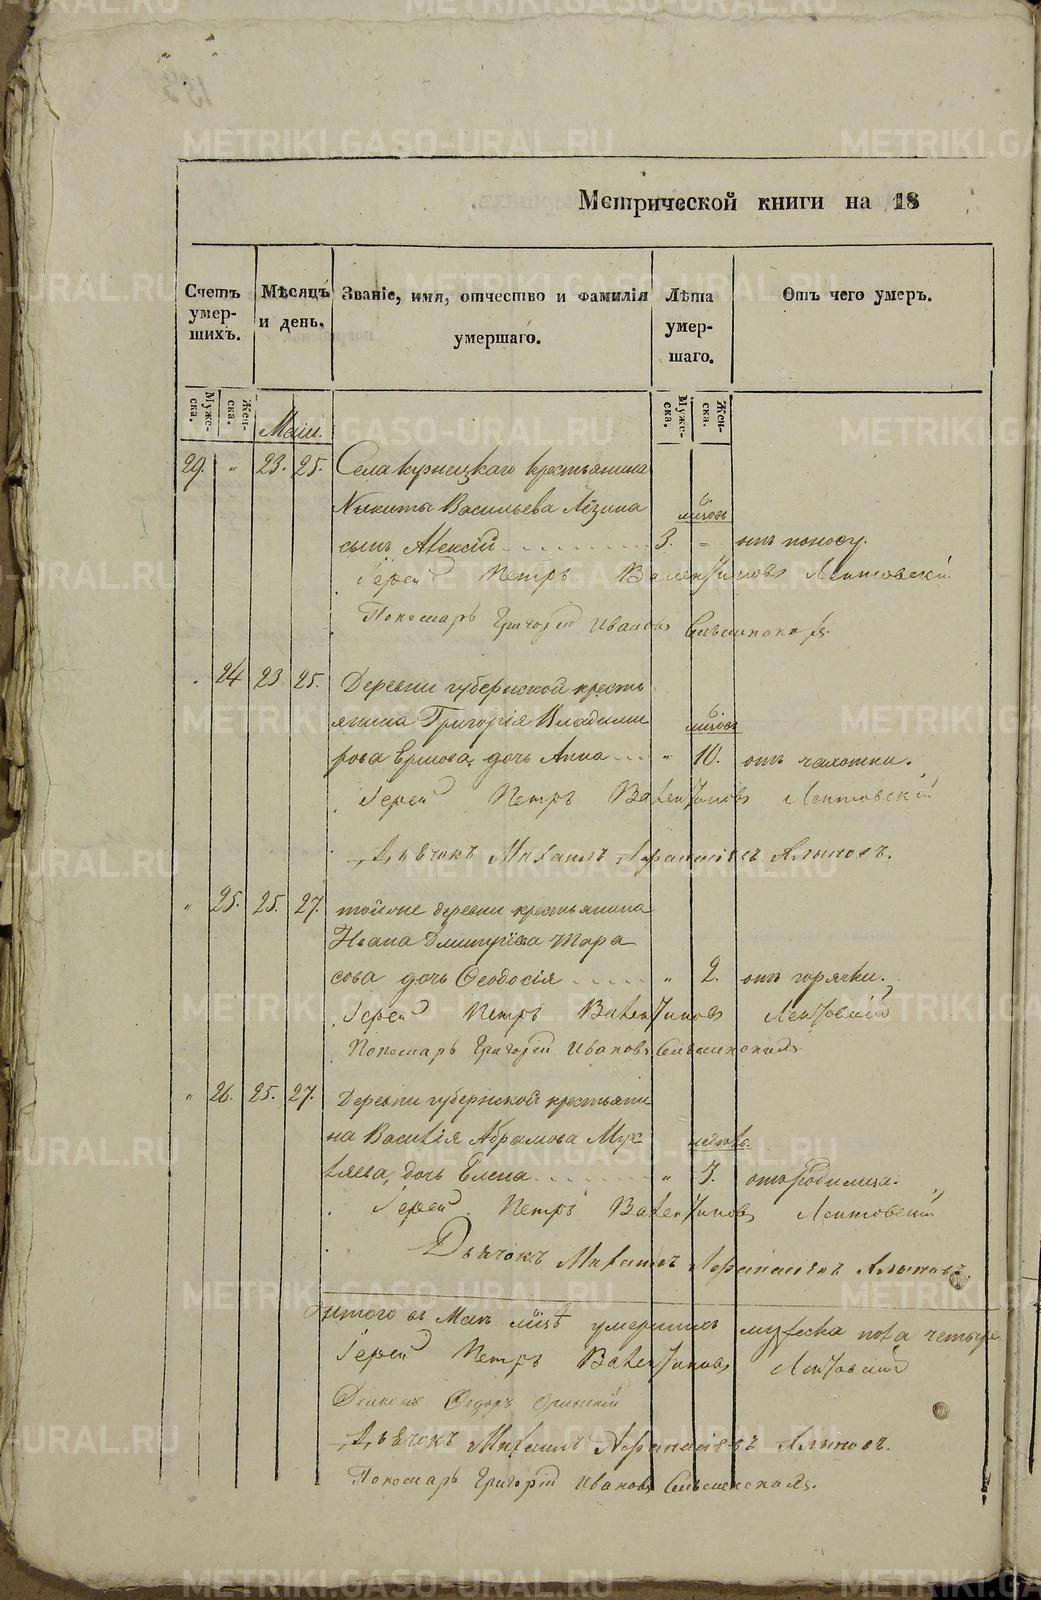 Метрической книги на 18
Счетъ умер-шихъ.
Мѣсяцъ и день.
Званіе, имя, отчество и фамилія умершаго.
Лѣта умер-шаго.
Отъ чего умеръ.
Муже-ска. Жен-ска.
Муже-ска. Жен-ска.
Маiи.
29. " 23. 25. Села кузнецкаго крестьянина
Никиты Васильева Лёзина 6. мѣсяцъ
сынъ Алексій 3. = отъ поносу.
Іерей Петръ Валентиновъ Лептовскій
Пономарь Григорій Ивановъ
24 23 25. Деревни губернской кресть
янина Григорія Владими 6. мѣсяцъ
рова Ермова, дочь Анна " 10. отъ чахотки.
Іерей Петръ Валентиновъ Лептовскій
Дьячокъ Михаилъ Афанасіевъ Алыповъ.
" 25. 25. 27. тойже деревни крестьянина
Ивана Дмитріева Тара
сова дочь Ѳеодосія " 2. отъ горячки.
Іерей Петръ Валентиновъ Лептовскій
Пономарь Григорій Ивановъ
" 26. 25. 27. Деревни губернской крестьяни
на Василія Абрамова Мух недѣль.
ляева, дочь Елена " 7. отъ родимца.
Іерей Петръ Валентиновъ Лептовскій
Дьячокъ Михаилъ Афанасіевъ Алыповъ.
итого въ Маѣ мѣсяцѣ умершихъ мужеска пола четыре
Іерей Петръ Валентиновъ Лептовскій
Ѳедоръ
Дьячокъ Михаилъ Афанасіевъ Алыповъ.
Пономарь Григорій Ивановъ
METRIKI.GASO-URAL.RU